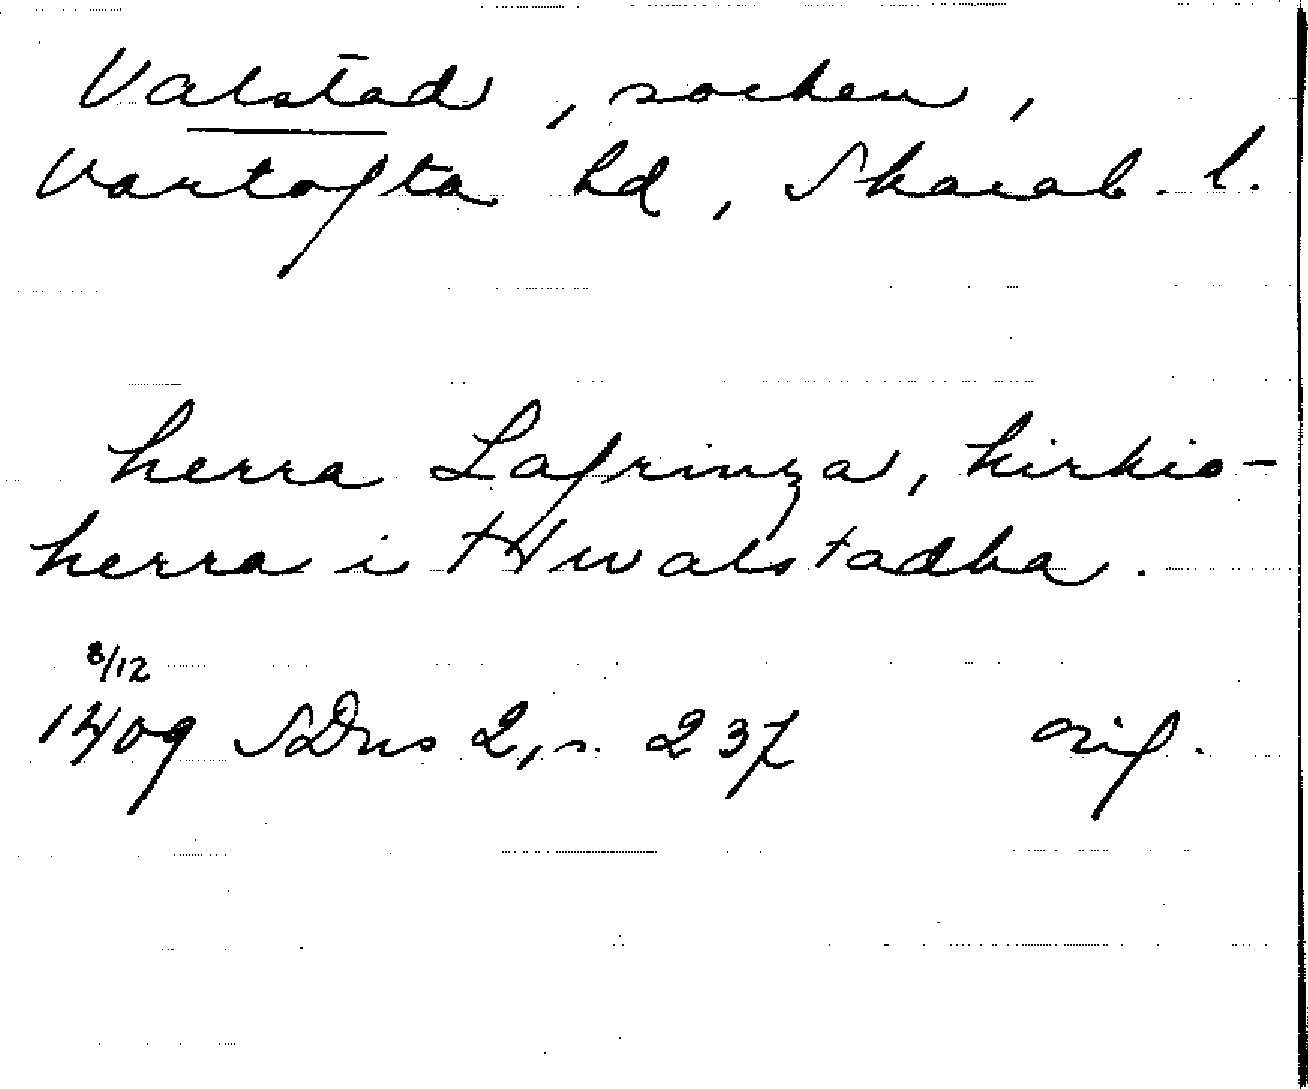 Valstad, socken,
Vartofta hd, Skarab. l.
herra Lafrinza, kirkio-
herra i Hwalstadha.
8/12
1409 SDns 2, s. 237 orig.